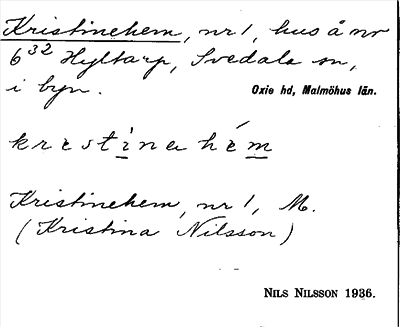 Kristinehem, nr 1, hus å nr
6³² Hyltarp, Svedala sn,
i byn.
Oxie hd, Malmöhus län.
krɪstina hém
Kristinehem, nr 1, M.
(Kristina Nilsson)
NILS NILSSON 1936.